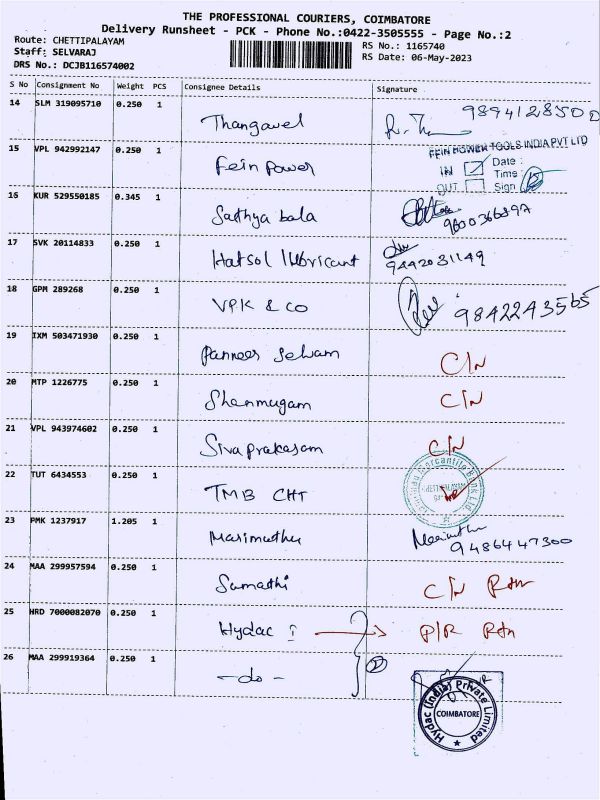 THE PROFESSIONAL COURIERS, COIMBATORE
Delivery Runsheet - PCK - Phone No.:0422-3505555 - Page No.:2
Route: CHETTIPALAYAM RS No.: 1165740
Staff: SELVARAJ RS Date: 06-May-2023
DRS No.: DCJB116574002
S No Consignment No Weight PCS Consignee Details Signature
14 SLM 319095710 0.250 1 Thangavel 9894128500
15 VPL 942992147 0.250 1 Fein Power FEIN POWER TOOLS INDIA PVT LTD
IN Date :
Time :
OUT Sign
16 KUR 529550185 0.345 1 Sathya bala
17 SVK 20114833 0.250 1 Hatsol lubricant 9442031149
18 GPM 289268 0.250 1 VPK & CO 9842243565
19 IXM 503471930 0.250 1 Panneer Selvam C/N
20 MTP 1226775 0.250 1 Shanmugam C/N
21 VPL 943974602 0.250 1 Sivaprakasam C/N
22 TUT 6434553 0.250 1 TMB CHT Mercantile Bank Ltd
23 PMK 1237917 1.205 1 Marimuthu Marimuthu
9486447300
24 MAA 299957594 0.250 1 Sumathi C/N Rtn
25 HRD 7000082070 0.250 1 Hydac I P/R Rtn
26 MAA 299919364 0.250 1 -do-
Hydac (India) Private Limited
COIMBATORE